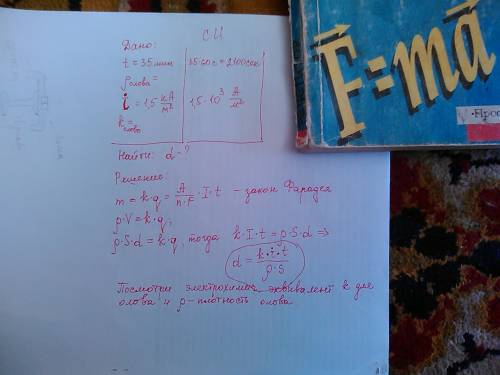 СИ
Дано:
t = 35 мин | 35·60 с = 2100 сек
ρ олова =
i = 1,5 кА/м² | 1,5·10³ А/м²
k олова =
Найти: d - ?
Решение:
m = k·q = A/(n·F) · I·t - закон Фарадея
ρ·V = k·q;
ρ·S·d = k·q, тогда k·I·t = ρ·S·d ⇒
d = k·i·t/(ρ·S)
Посмотри электрохимич. эквивалент k для
олова и ρ - плотность олова
F⃗=ma⃗